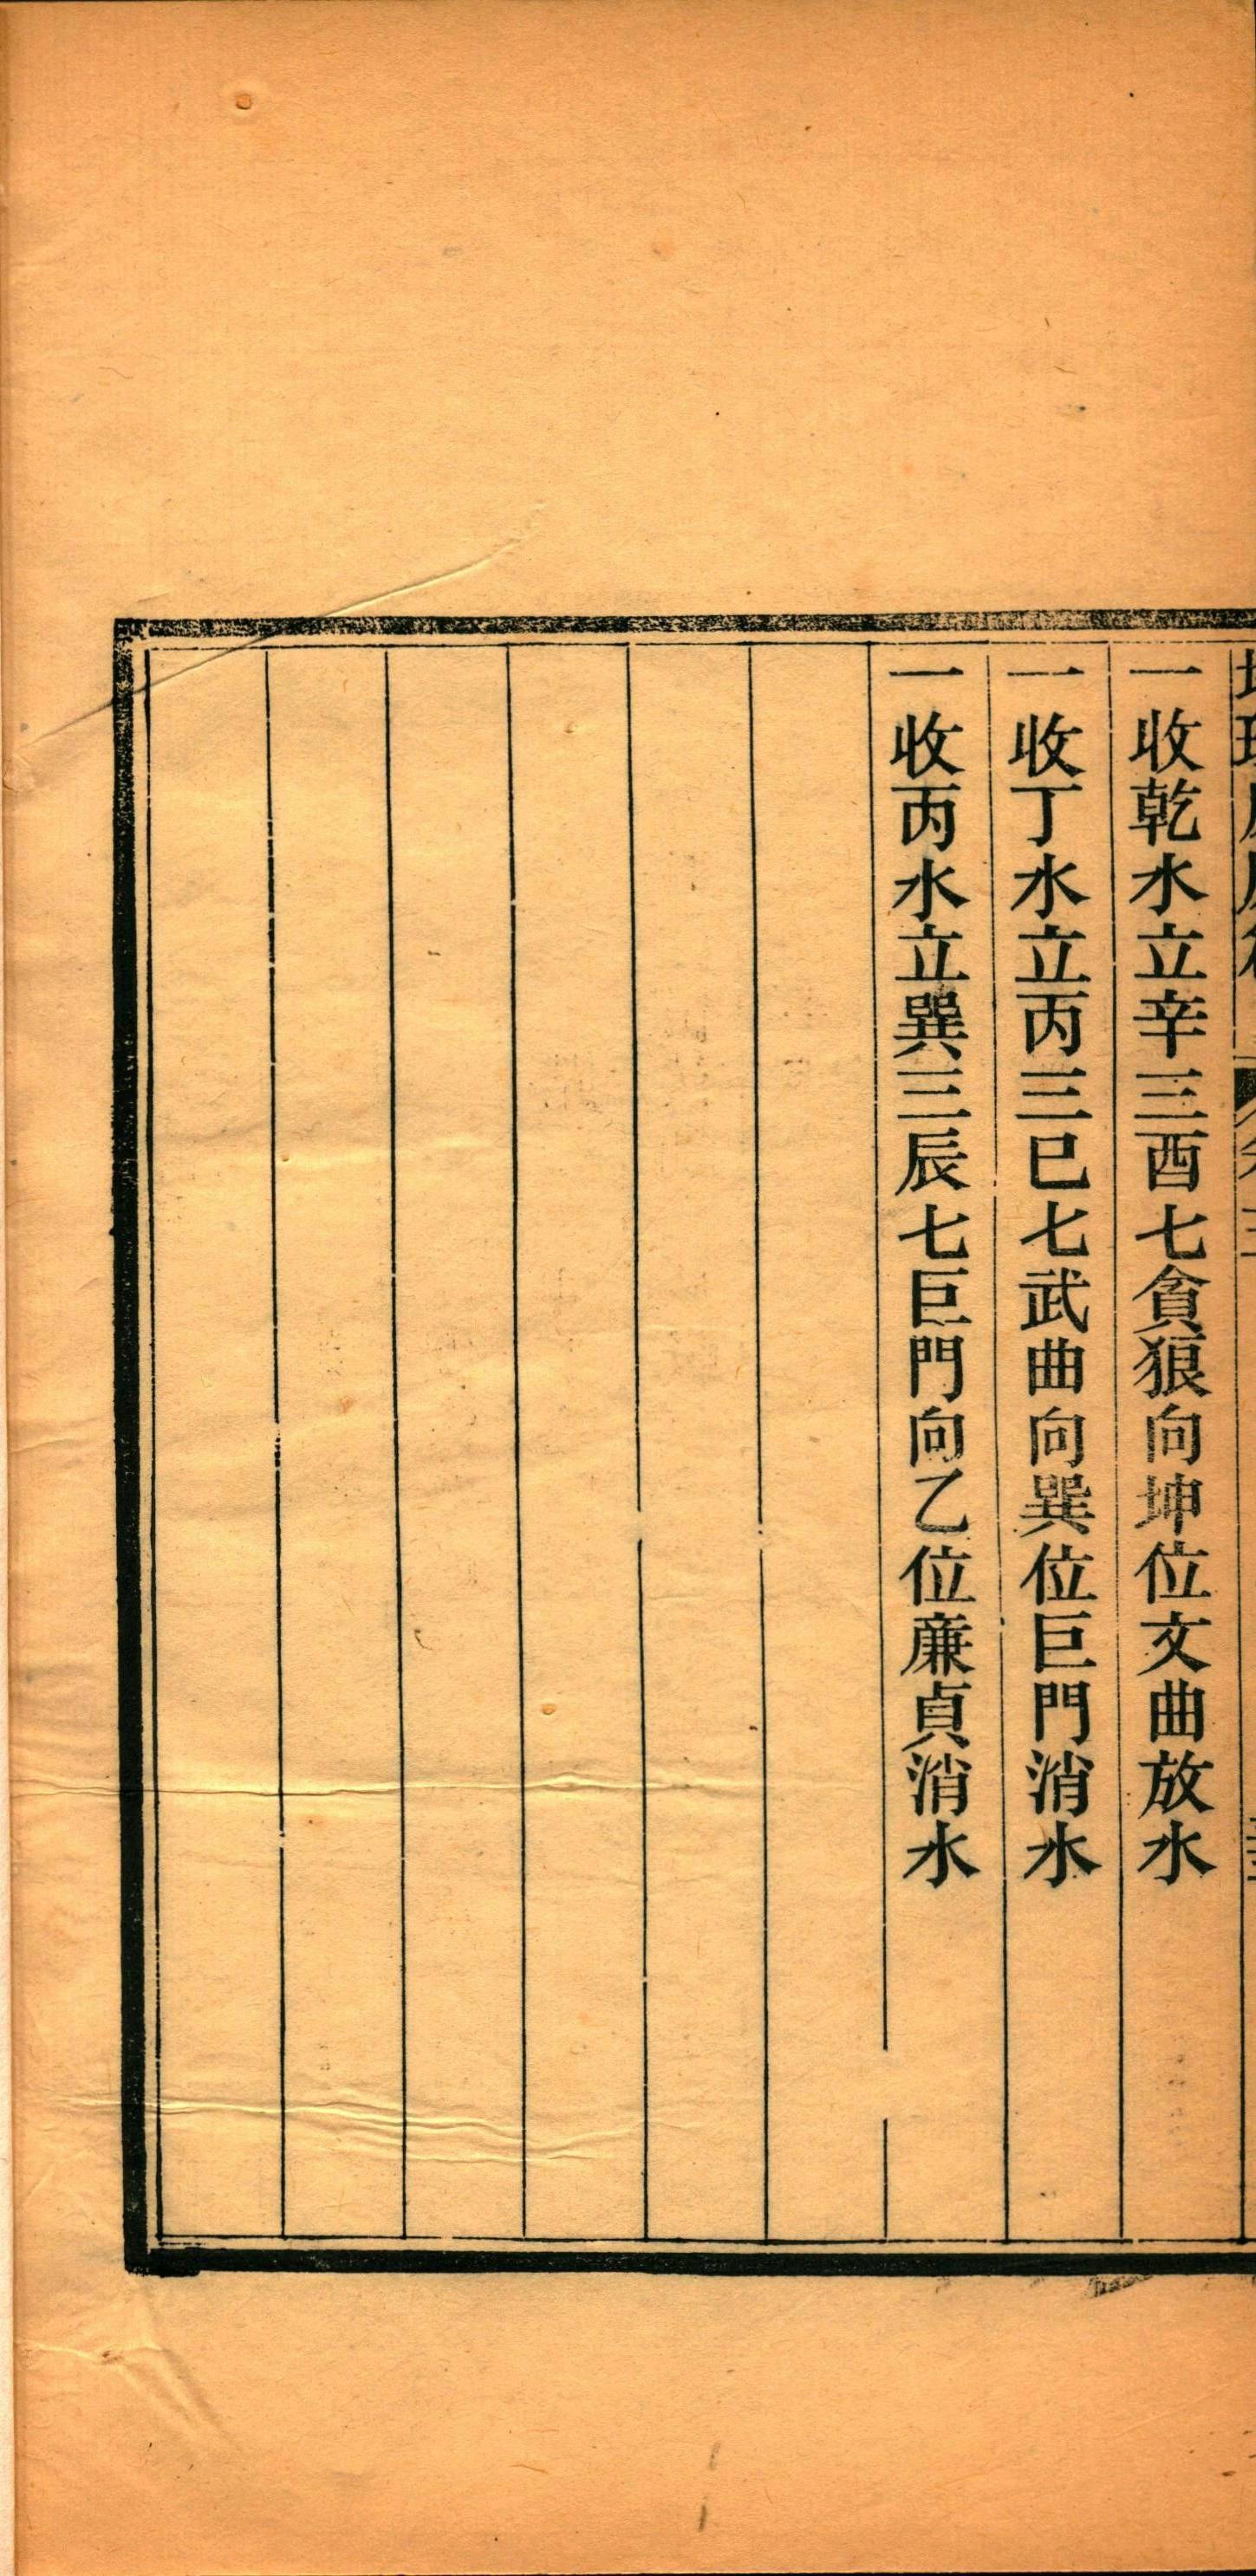 一收乾水立辛三酉七貪狼向坤位文曲放水
一收丁水立丙三巳七武曲向巽位巨門消水
一收丙水立巽三辰七巨門向乙位廉貞消水